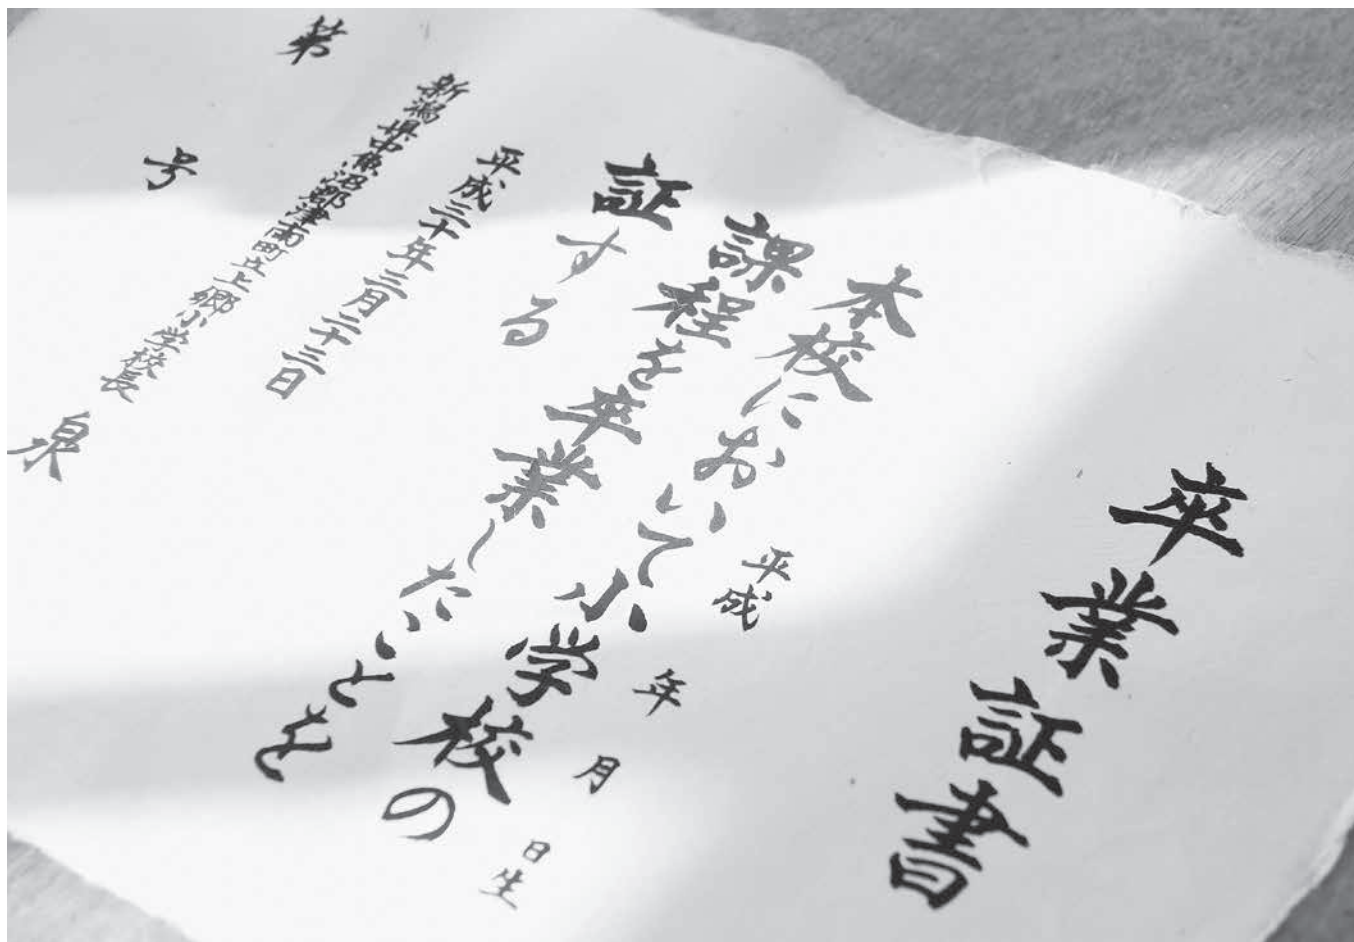 卒業証書
平成 年 月 日生
本校において小学校の
課程を卒業したことを
証する
平成三十年三月二十三日
新潟県中魚沼郡津南町立上郷小学校長 泉
第 号